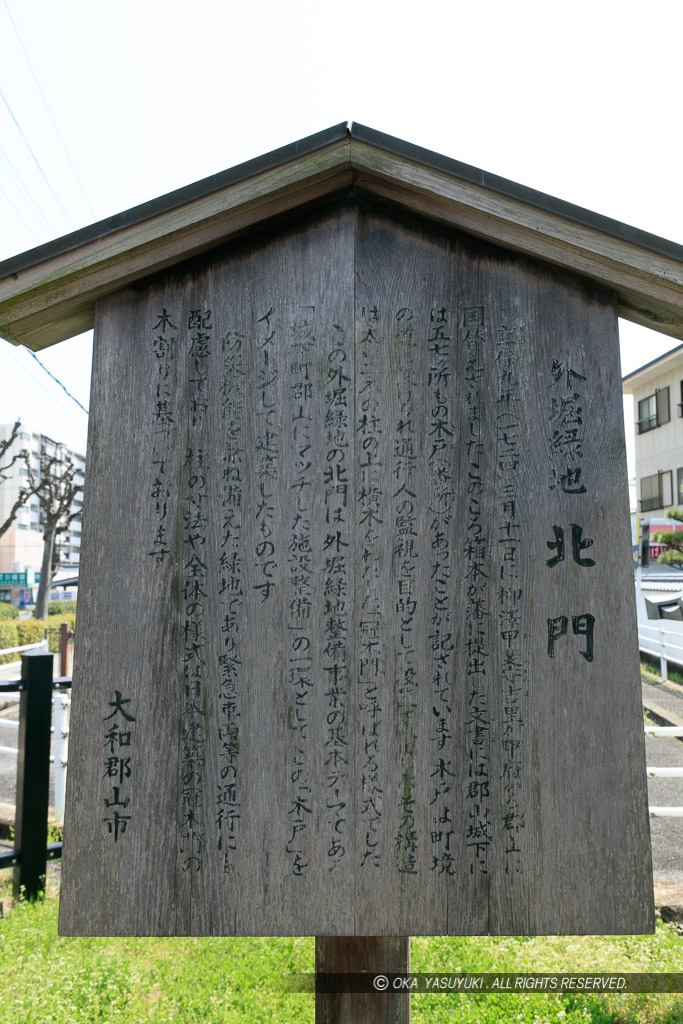 外堀緑地 北門
享保九年(一七二四)三月十一日に柳澤甲斐守吉里が甲府から郡山に
国替えされましたこのころ箱本が藩に提出した文書には郡山城下に
は五七所もの木戸(番所)があったことが記されています 木戸は町境
の道に 通行人の監視を目的として その構造
は太い二本の柱の上に横木をわたした「冠木門」と呼ばれる様式でした
この外堀緑地の北門は外堀緑地整備事業の基本テーマである
「城下町郡山にマッチした施設整備」の一環としてこの「木戸」を
イメージして建築したものです
防災機能を兼ね備えた緑地であり緊急車両等の通行にも
配慮しており 柱の寸法や全体の様式は日本建築の冠木門の
木割りに基づいております
大和郡山市
© OKA YASUYUKI. ALL RIGHTS RESERVED.